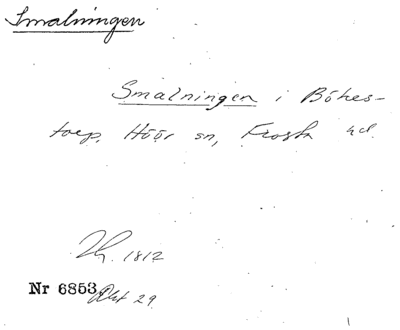 Smalningen
Smalningen i Bökes-
torp, Höör sn, Frosta hd.
1812
Nr 6853 Akt 29